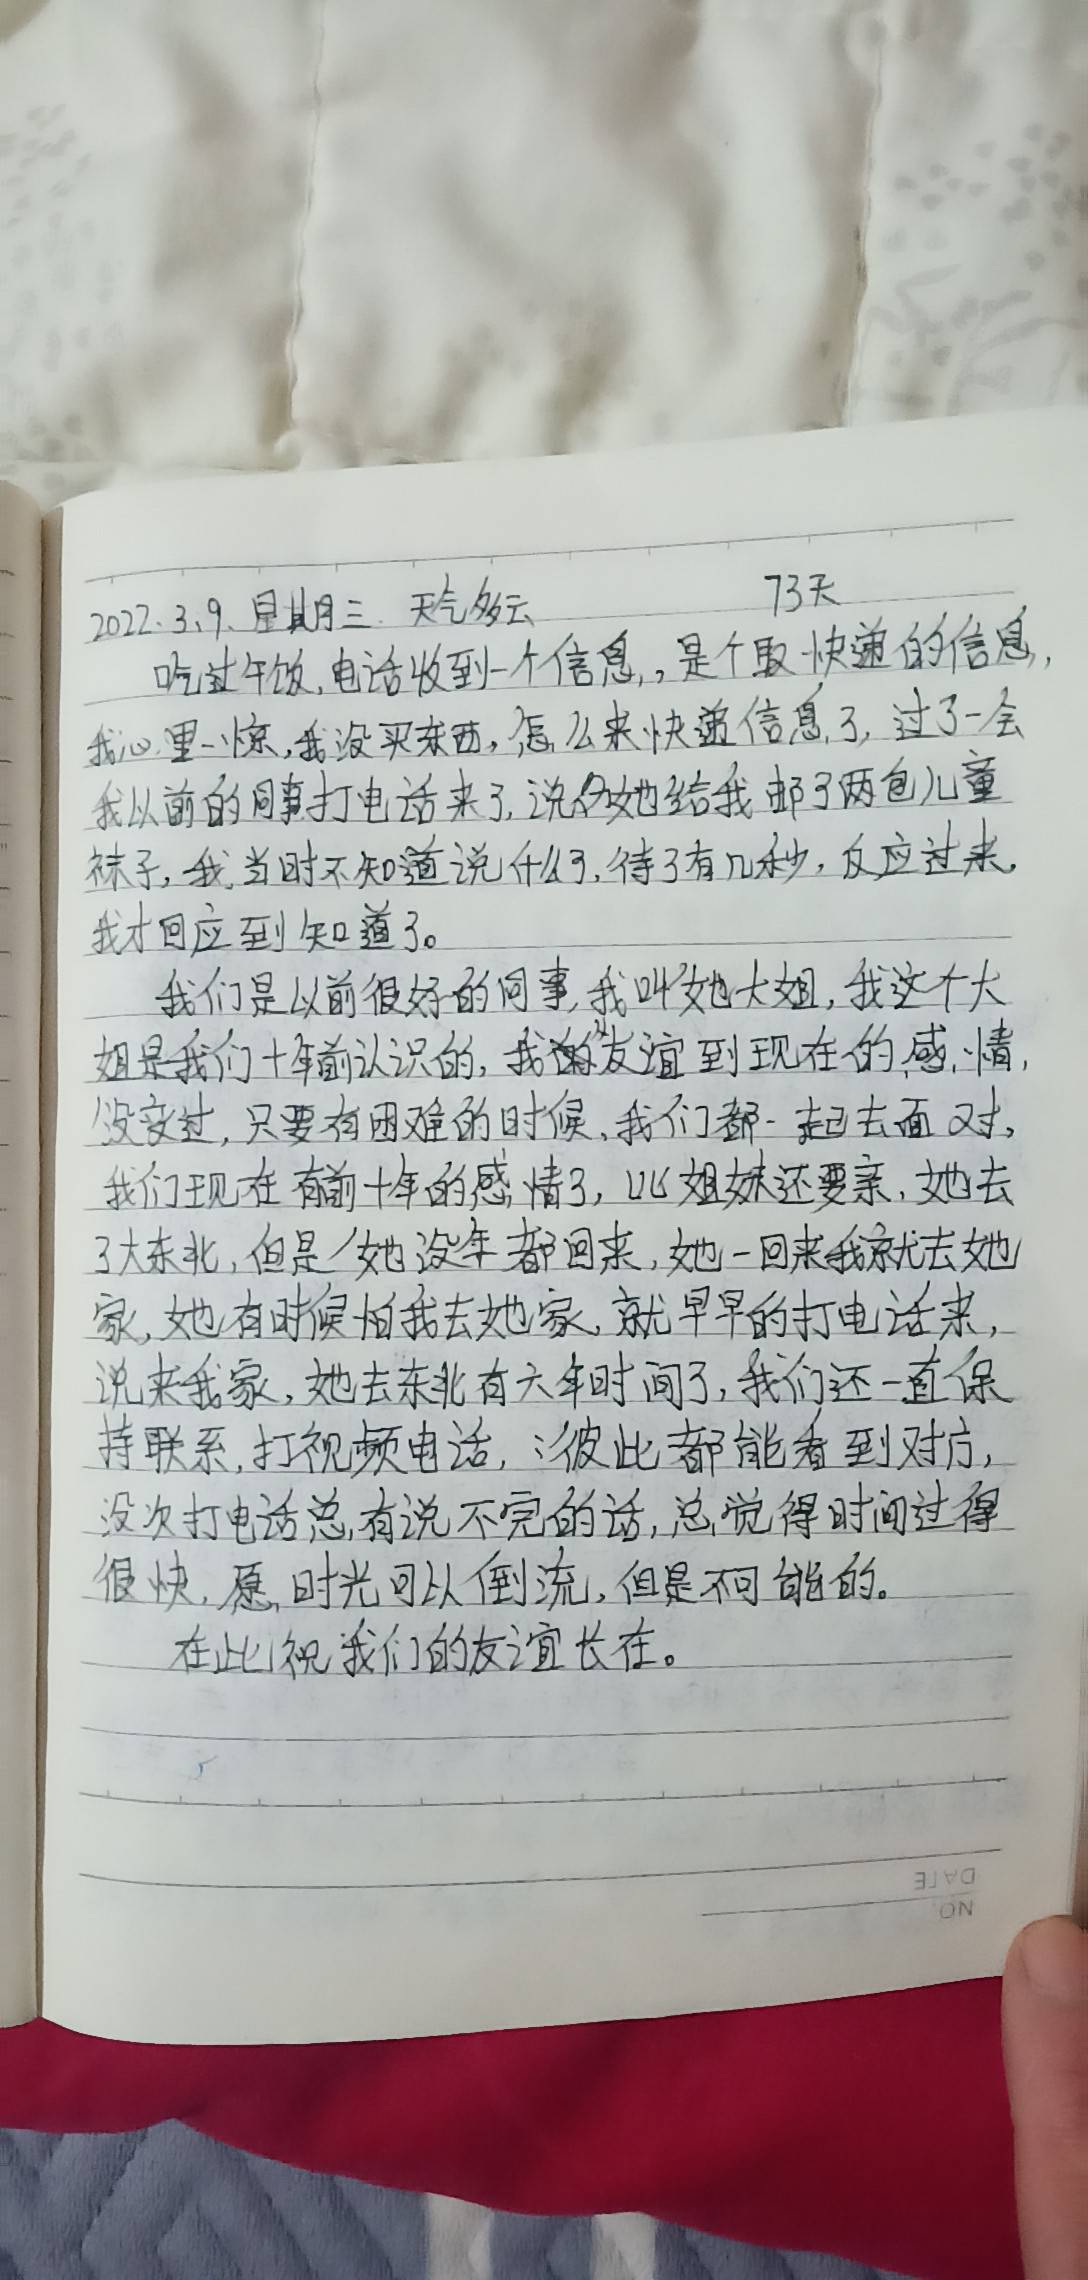 2022.3.9. 星期三. 天气多云 73天
吃过午饭,电话收到一个信息,,是个取快递的信息,
我心里一惊,我没买东西,怎么来快递信息了,过了一会
我以前的同事打电话来了,说她给我邮了两包儿童
袜子,我当时不知道说什么了,待了有几秒,反应过来,
我才回应到知道了。
我们是以前很好的同事,我叫她大姐,我这个大
姐是我们十年前认识的,我们友谊到现在的感情,
没变过,只要有困难的时候,我们都一起去面对,
我们现在有前十年的感情了,比姐妹还要亲,她去
了大东北,但是她没年都回来,她一回来我就去她
家,她有时候怕我去她家,就早早的打电话来,
说来我家,她去东北有六年时间了,我们还一直保
持联系,打视频电话,彼此都能看到对方,
没次打电话总有说不完的话,总觉得时间过得
很快,愿时光可以倒流,但是不可能的。
在此祝我们的友谊长在。
DATE
NO